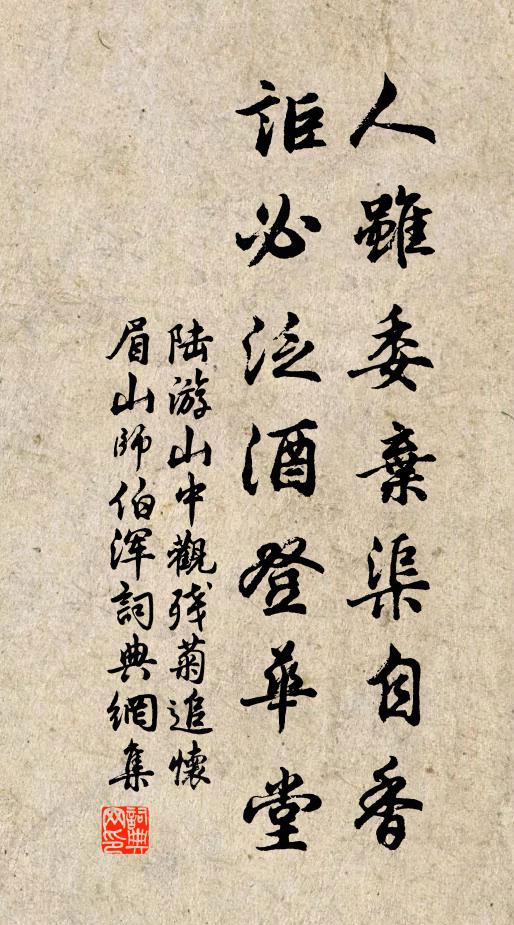 人雖委棄渠自香
詎必泛酒登華堂
陆游山中觀残菊追懷
眉山师伯浑詞典網集
詞典
网印